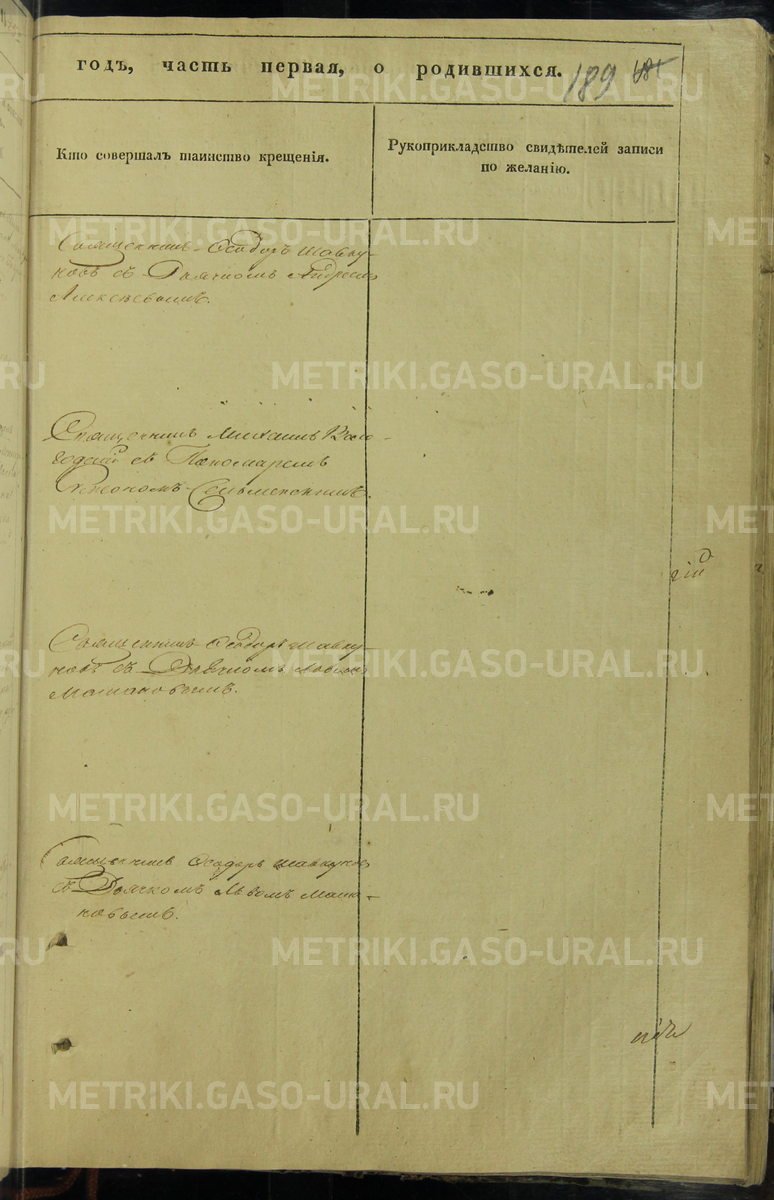 годъ, часть первая, о родившихся. 189
Кто совершалъ таинство крещенія.
Рукоприкладство свидѣтелей записи
по желанію.
Священникъ Ѳеодоръ Шавку-
новъ съ Дьячкомъ Андреемъ
Алексѣевымъ.
Священникъ Михаилъ Воло-
годскій съ Пономаремъ
Сѵмеономъ
Священникъ Ѳеодоръ Шавку-
новъ съ Дьячкомъ Львомъ
Священникъ Ѳеодоръ Шавкуновъ
съ Дьячкомъ Львомъ
METRIKI.GASO-URAL.RU